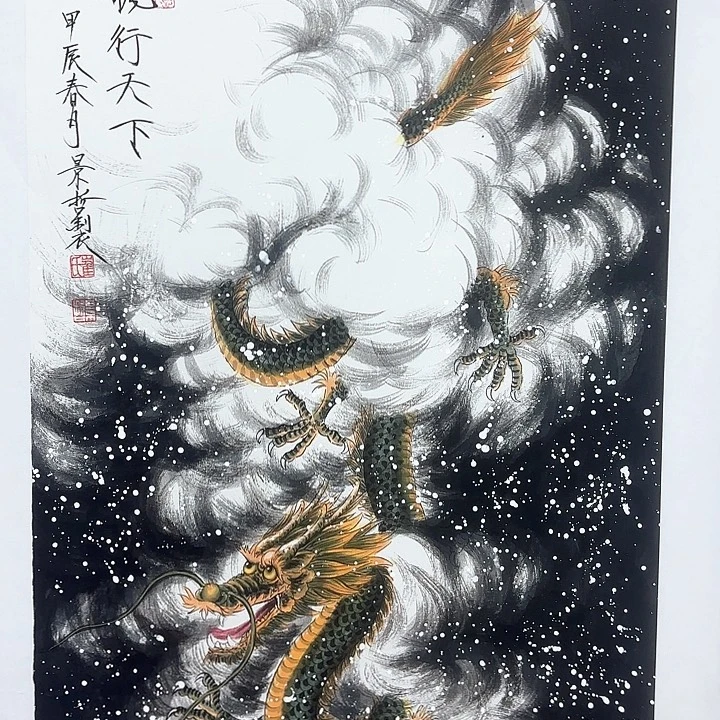 行天下
甲辰春月景哲製